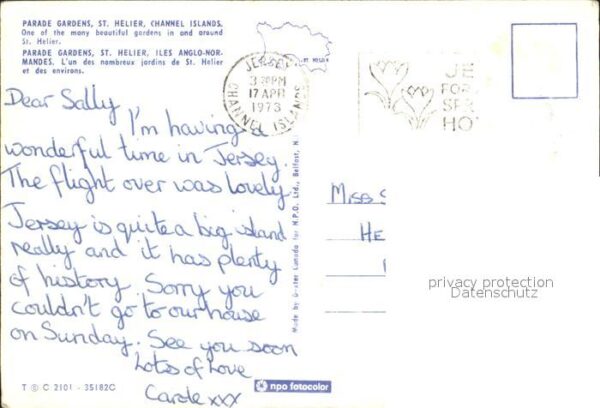 PARADE GARDENS, ST. HELIER, CHANNEL ISLANDS.
One of the many beautiful gardens in and around
St. Helier.
PARADE GARDENS, ST. HELIER, ILES ANGLO-NOR-
MANDES. L'un des nombreux jardins de St. Helier
et des environs.
Dear Sally
I'm having a
wonderful time in Jersey.
The flight over was lovely.
Jersey is quite a big island
really and it has plenty
of history. Sorry you
couldn't go to our house
on Sunday. See you soon
Lots of Love
Carole xxx
T © C 2101 - 35182C
npo fotocolor
ST HELIER
JERSEY
3 30PM
17 APR
1973
CHANNEL ISLANDS
JE
FOR
SP
HO
Made by for N.P.O. Ltd., Belfast, N.
MISS S
HE
privacy protection
Datenschutz